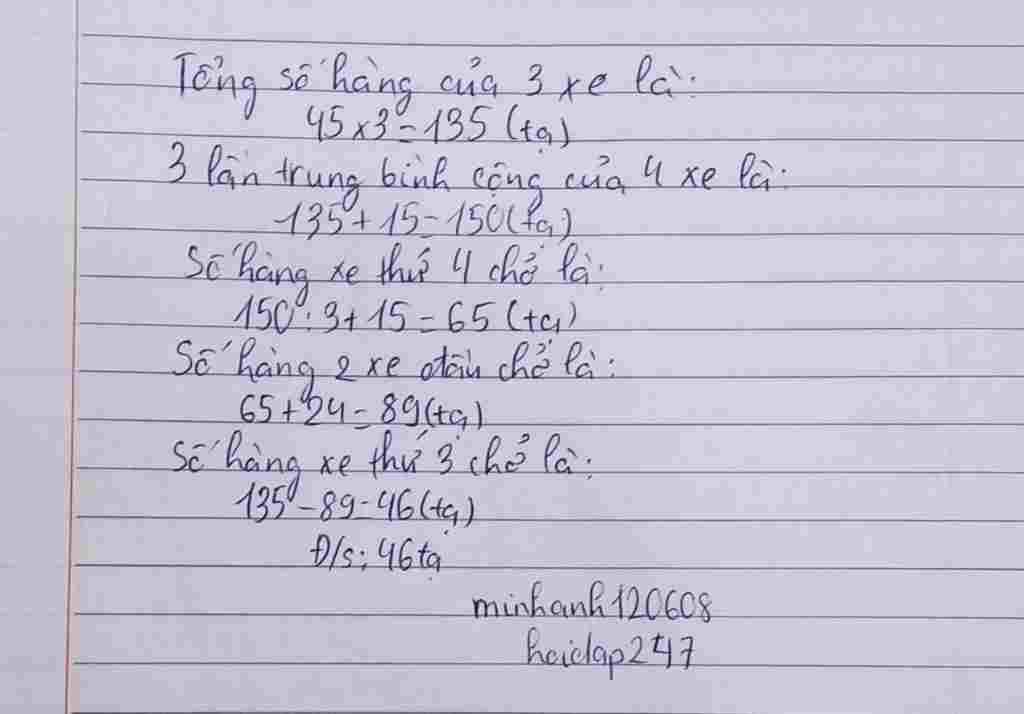 Tổng số hàng của 3 xe là:
45 x 3 = 135 (tạ)
3 lần trung bình cộng của 4 xe là:
135 + 15 = 150 (tạ)
Số hàng xe thứ 4 chở là:
150 : 3 + 15 = 65 (tạ)
Số hàng 2 xe đầu chở là:
65 + 24 = 89 (tạ)
Số hàng xe thứ 3 chở là:
135 - 89 = 46 (tạ)
Đ/s: 46 tạ
minhanh120608
hoidap247